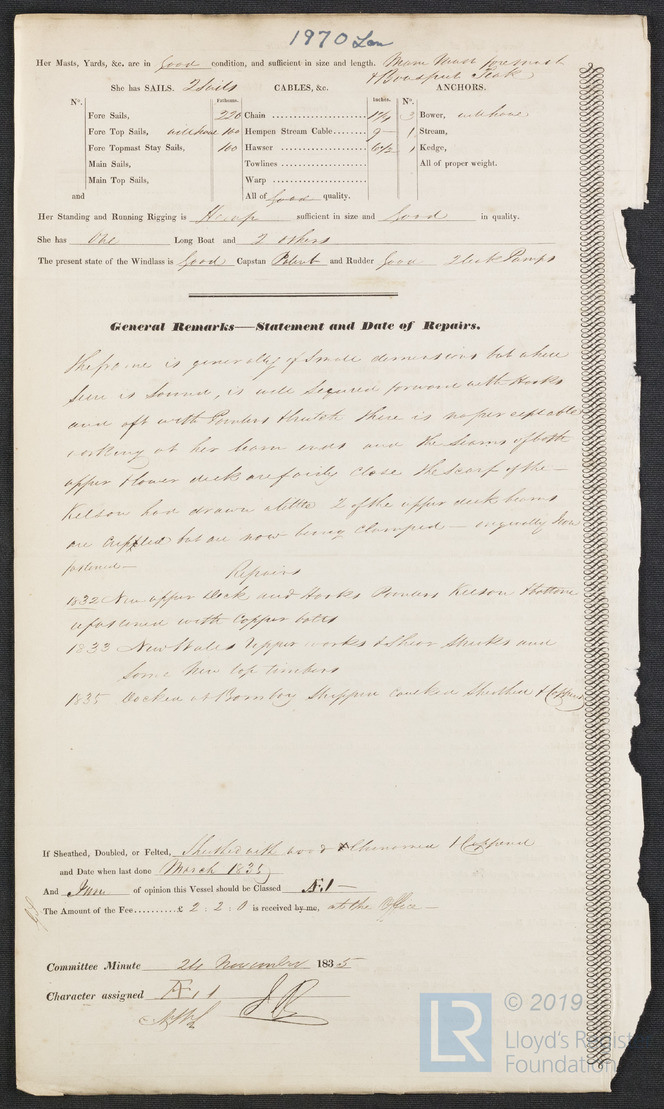 1970 Lon
Her Masts, Yards, &c. are in Good condition, and sufficient in size and length. Main Mast foremast
& Bowsprit Teak
She has SAILS. 2 Suits CABLES, &c. ANCHORS.
N°. Fathoms. Inches. N°.
Fore Sails, 220 Chain 3 Bower,
Fore Top Sails, 100 Hempen Stream Cable 9 1 Stream,
Fore Topmast Stay Sails, 100 Hawser 1 Kedge,
Main Sails, Towlines All of proper weight.
Main Top Sails, Warp
and All of Good quality.
Her Standing and Running Rigging is Hemp sufficient in size and Good in quality.
She has One Long Boat and 2 others
The present state of the Windlass is Good Capstan Patent and Rudder Good 2 Pumps
General Remarks—Statement and Date of Repairs.
The frame is generally of Small dimensions but where
Seen is Sound, is well Secured forward with Hooks
and aft with Pointers there is no perceptable
working at her beam ends and the Seams of both
upper & lower deck are fairly close the Scarf of the
Kelson had drawn a little 2 of the upper deck beams
are but are now being Clamped — originally Iron
fastened—
Repairs
1832 New upper Deck and Hooks Pointers Kelson & bottom
refastened with Copper bolts
1833 New Wales Upper works & Shear Streaks and
Some New top timbers
1835 Docked at Bombay Stripped caulked Sheathed & Coppered
If Sheathed, Doubled, or Felted, Sheathed with wood & Chunamed & Coppered
and Date when last done March 1835
And I am of opinion this Vessel should be Classed Æ1 —
The Amount of the Fee..........£ 2 : 2 : 0 is received by me, at the Office —
Committee Minute 24 November 1835
Character assigned Æ 1
LR
© 2019
Lloyd's Regist
Foundation